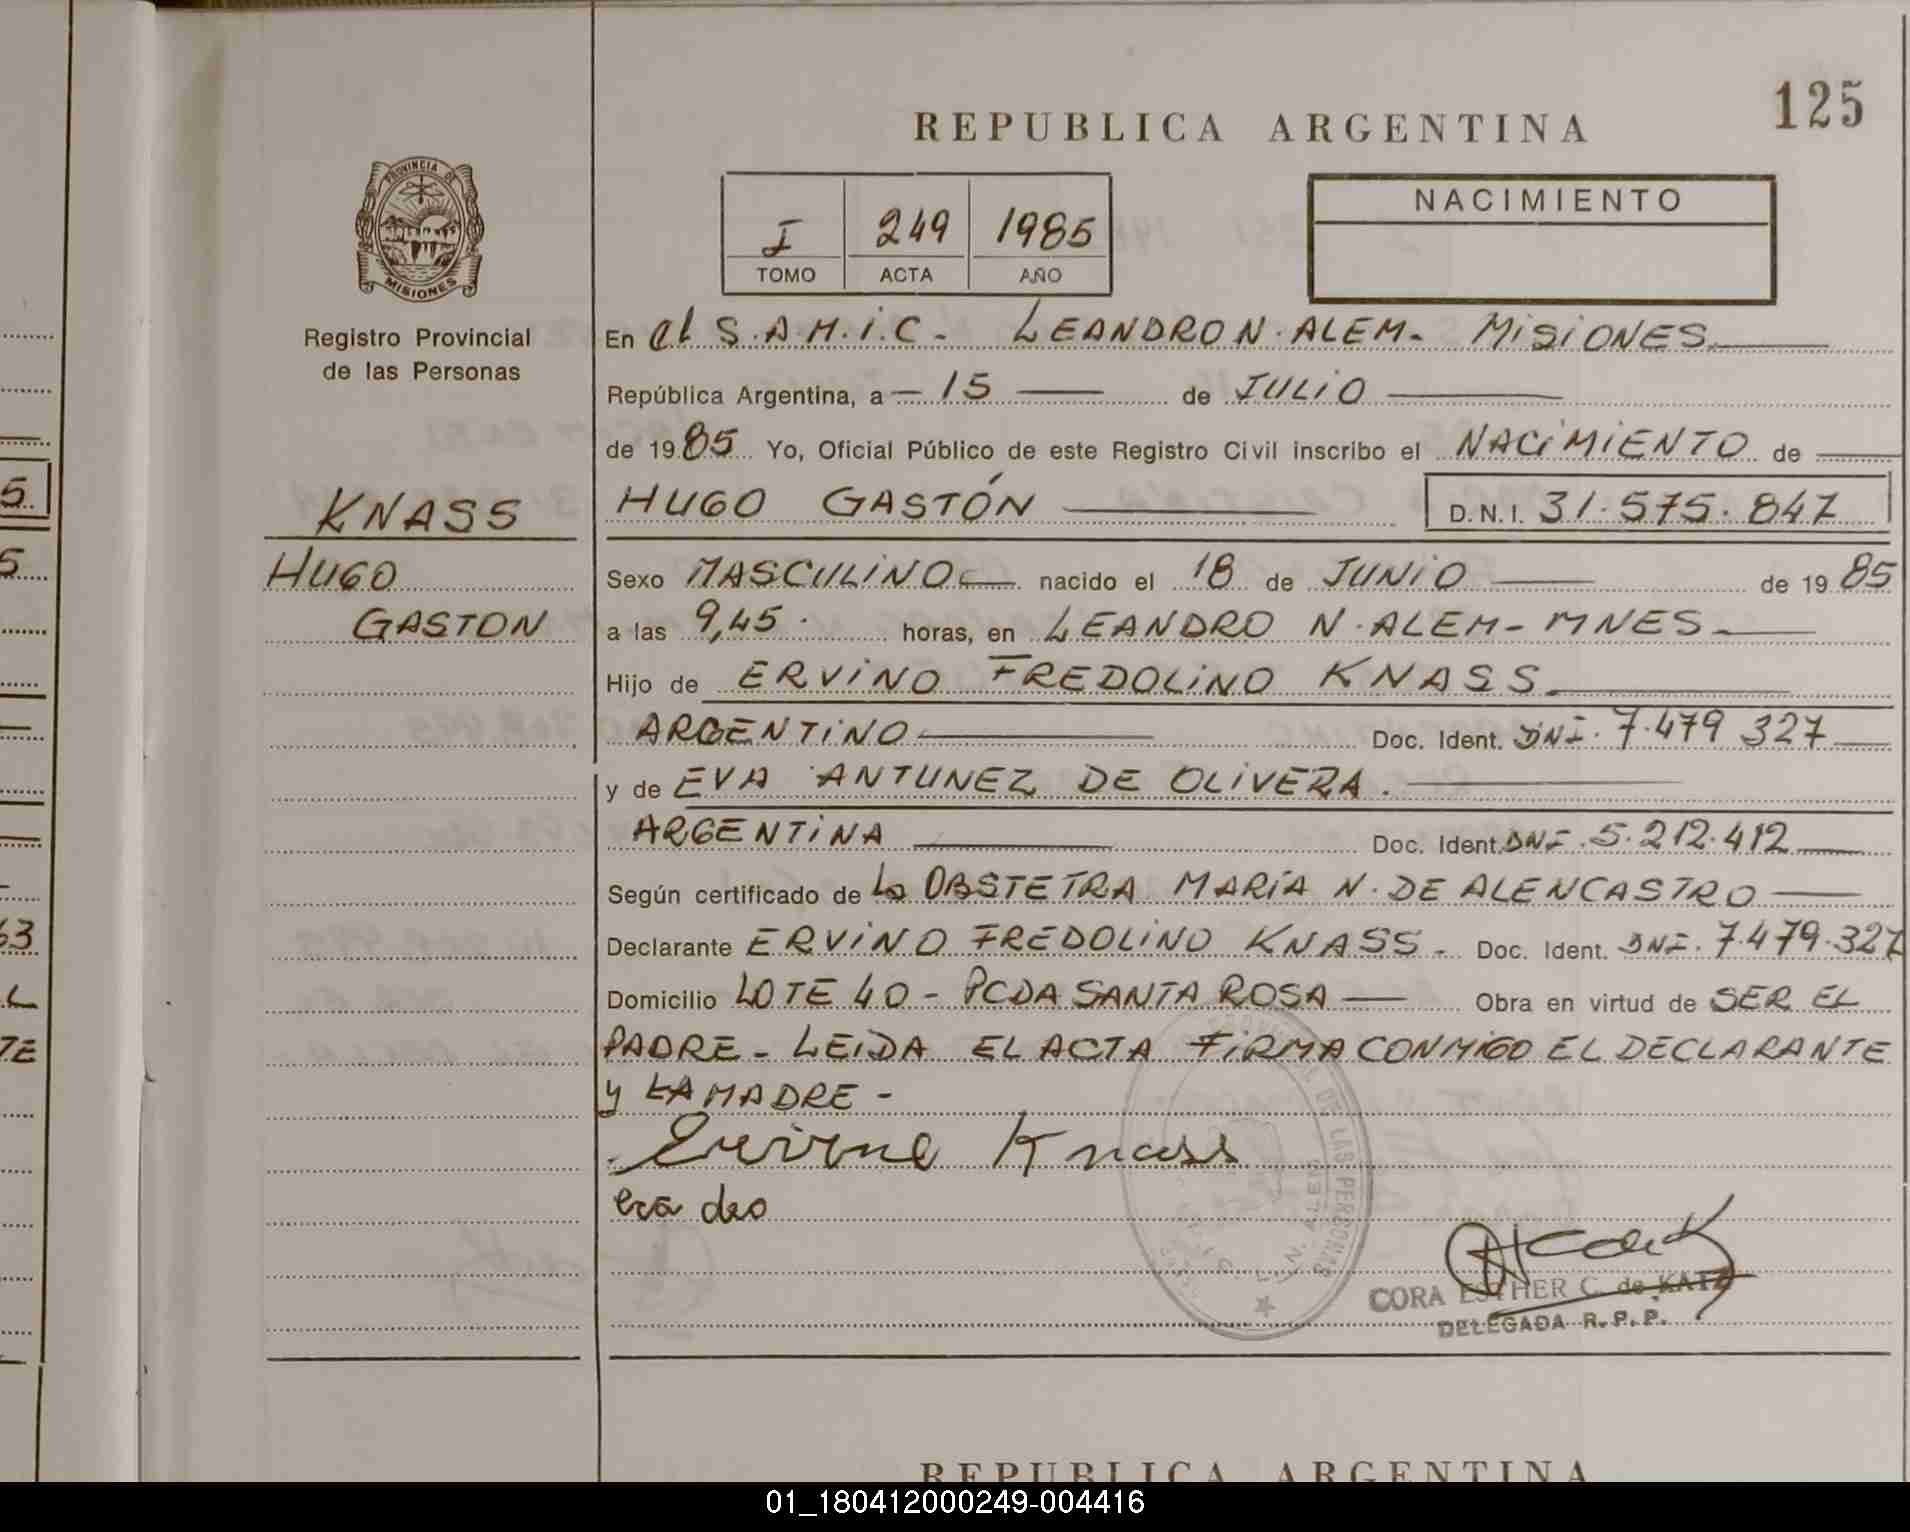 125
REPUBLICA ARGENTINA
PROVINCIA DE
MISIONES
Registro Provincial
de las Personas
I 249 1985
TOMO ACTA AÑO
NACIMIENTO
En el S.A.M.I.C. - LEANDRO N. ALEM - MISIONES
República Argentina, a - 15 - de JULIO
de 1985 Yo, Oficial Público de este Registro Civil inscribo el NACIMIENTO de
KNASS
HUGO
GASTON
HUGO GASTÓN D.N.I. 31.575.847
Sexo MASCULINO nacido el 18 de JUNIO de 1985
a las 9,45. horas, en LEANDRO N. ALEM - MNES -
Hijo de ERVINO FREDOLINO KNASS
ARGENTINO Doc. Ident. DNI. 7.479 327
y de EVA ANTUNEZ DE OLIVERA.
ARGENTINA Doc. Ident. DNI. 5.212.412
Según certificado de la OBSTETRA MARÍA N. DE ALENCASTRO
Declarante ERVINO FREDOLINO KNASS - Doc. Ident. DNI. 7.479.327
Domicilio LOTE 40 - PCDA SANTA ROSA - Obra en virtud de SER EL
PADRE - LEIDA EL ACTA FIRMA CONMIGO EL DECLARANTE
y LA MADRE -
Knass
eva
DE LAS PERSONAS
L. N. ALEM
CORA ESTHER C. de KATZ
DELEGADA R.P.P.
REPUBLICA ARGENTINA
5.
5
63
L
TE
01_180412000249-004416